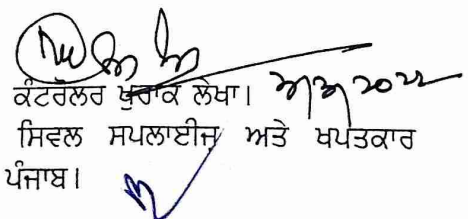 ਕੰਟਰੋਲਰ ਖੁਰਾਕ ਲੇਖਾ।
ਸਿਵਲ ਸਪਲਾਈਜ਼ ਅਤੇ ਖਪਤਕਾਰ
ਪੰਜਾਬ।